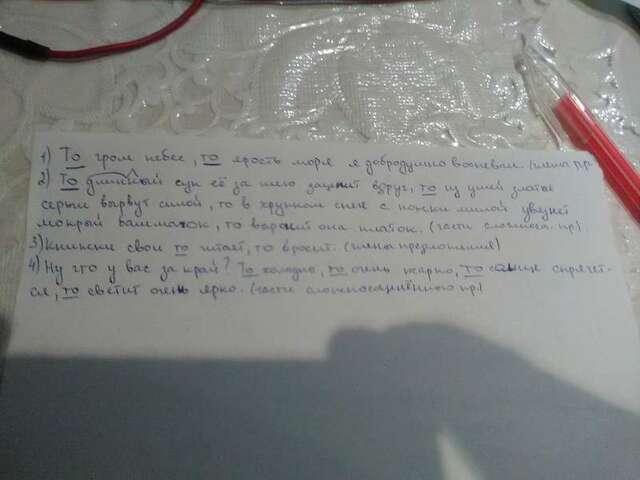 1) То гром небес, то ярость моря я добродушно воспевал. (члены пр.
2) То длинный сук её за шею зацепит вдруг, то из ушей златые
серьги вырвут силой, то в хрупком снеге с ножки милой увязнет
мокрый башмачок, то выронит она платок. (части сложного. пр)
3) Книжски свои то читает, то бросит. (члены предложения)
4) Ну что у вас за край? То холодно, то очень жарко, то солнце спрячет-
ся, то светит очень ярко. (части сложносочинённого пр)